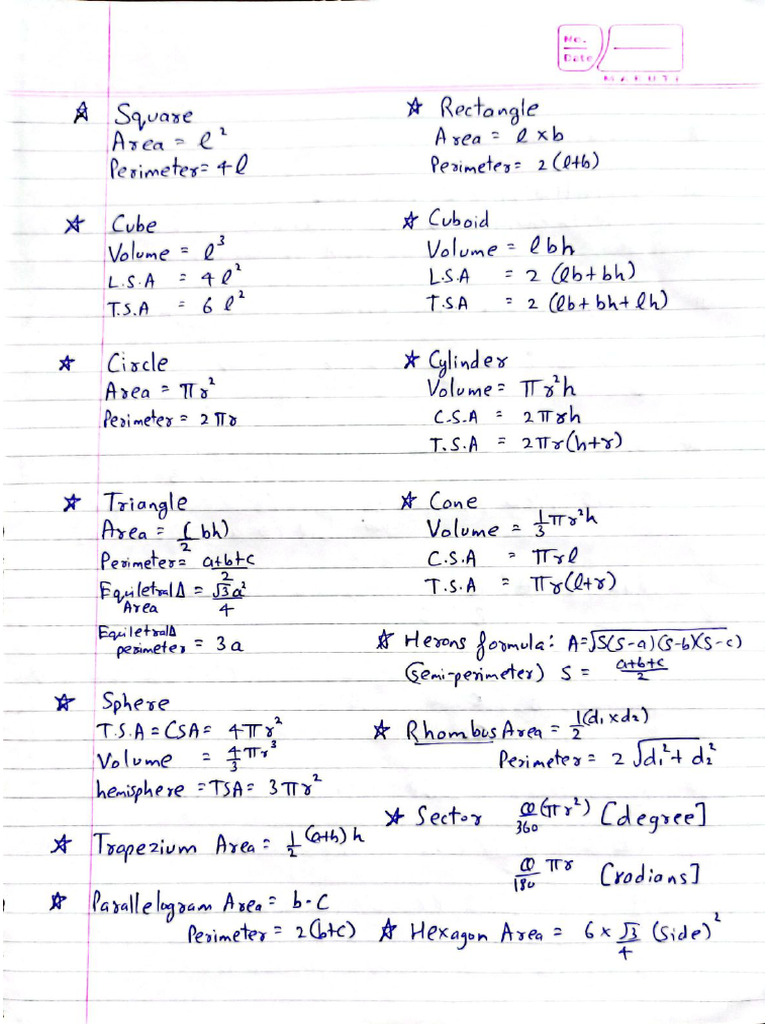 No.
Date
MARUTI
☆ Square
Area = l²
Perimeter = 4l
☆ Rectangle
Area = l × b
Perimeter = 2(l+b)
☆ Cube
Volume = l³
L.S.A = 4l²
T.S.A = 6l²
☆ Cuboid
Volume = lbh
L.S.A = 2(lb+bh)
T.S.A = 2(lb+bh+lh)
☆ Circle
Area = πr²
Perimeter = 2πr
☆ Cylinder
Volume = πr²h
C.S.A = 2πrh
T.S.A = 2πr(h+r)
☆ Triangle
Area = 1/2(bh)
Perimeter = a+b+c/2
Equiletral Δ Area = √3a²/4
Equiletral Δ perimeter = 3a
☆ Cone
Volume = 1/3 πr²h
C.S.A = πrl
T.S.A = πr(l+r)
☆ Herons formula: A=√S(S-a)(S-b)(S-c)
(semi-perimeter) S = a+b+c/2
☆ Sphere
T.S.A = CSA = 4πr²
Volume = 4/3 πr³
hemisphere = TSA = 3πr²
☆ Rhombus Area = 1/2(d₁×d₂)
Perimeter = 2√d₁²+d₂²
☆ Sector Θ/360 (πr²) [degree]
Θ/180 πr [radians]
☆ Trapezium Area = 1/2(a+b)h
☆ Parallelogram Area = b·c
Perimeter = 2(b+c)
☆ Hexagon Area = 6 × √3/4 (side)²